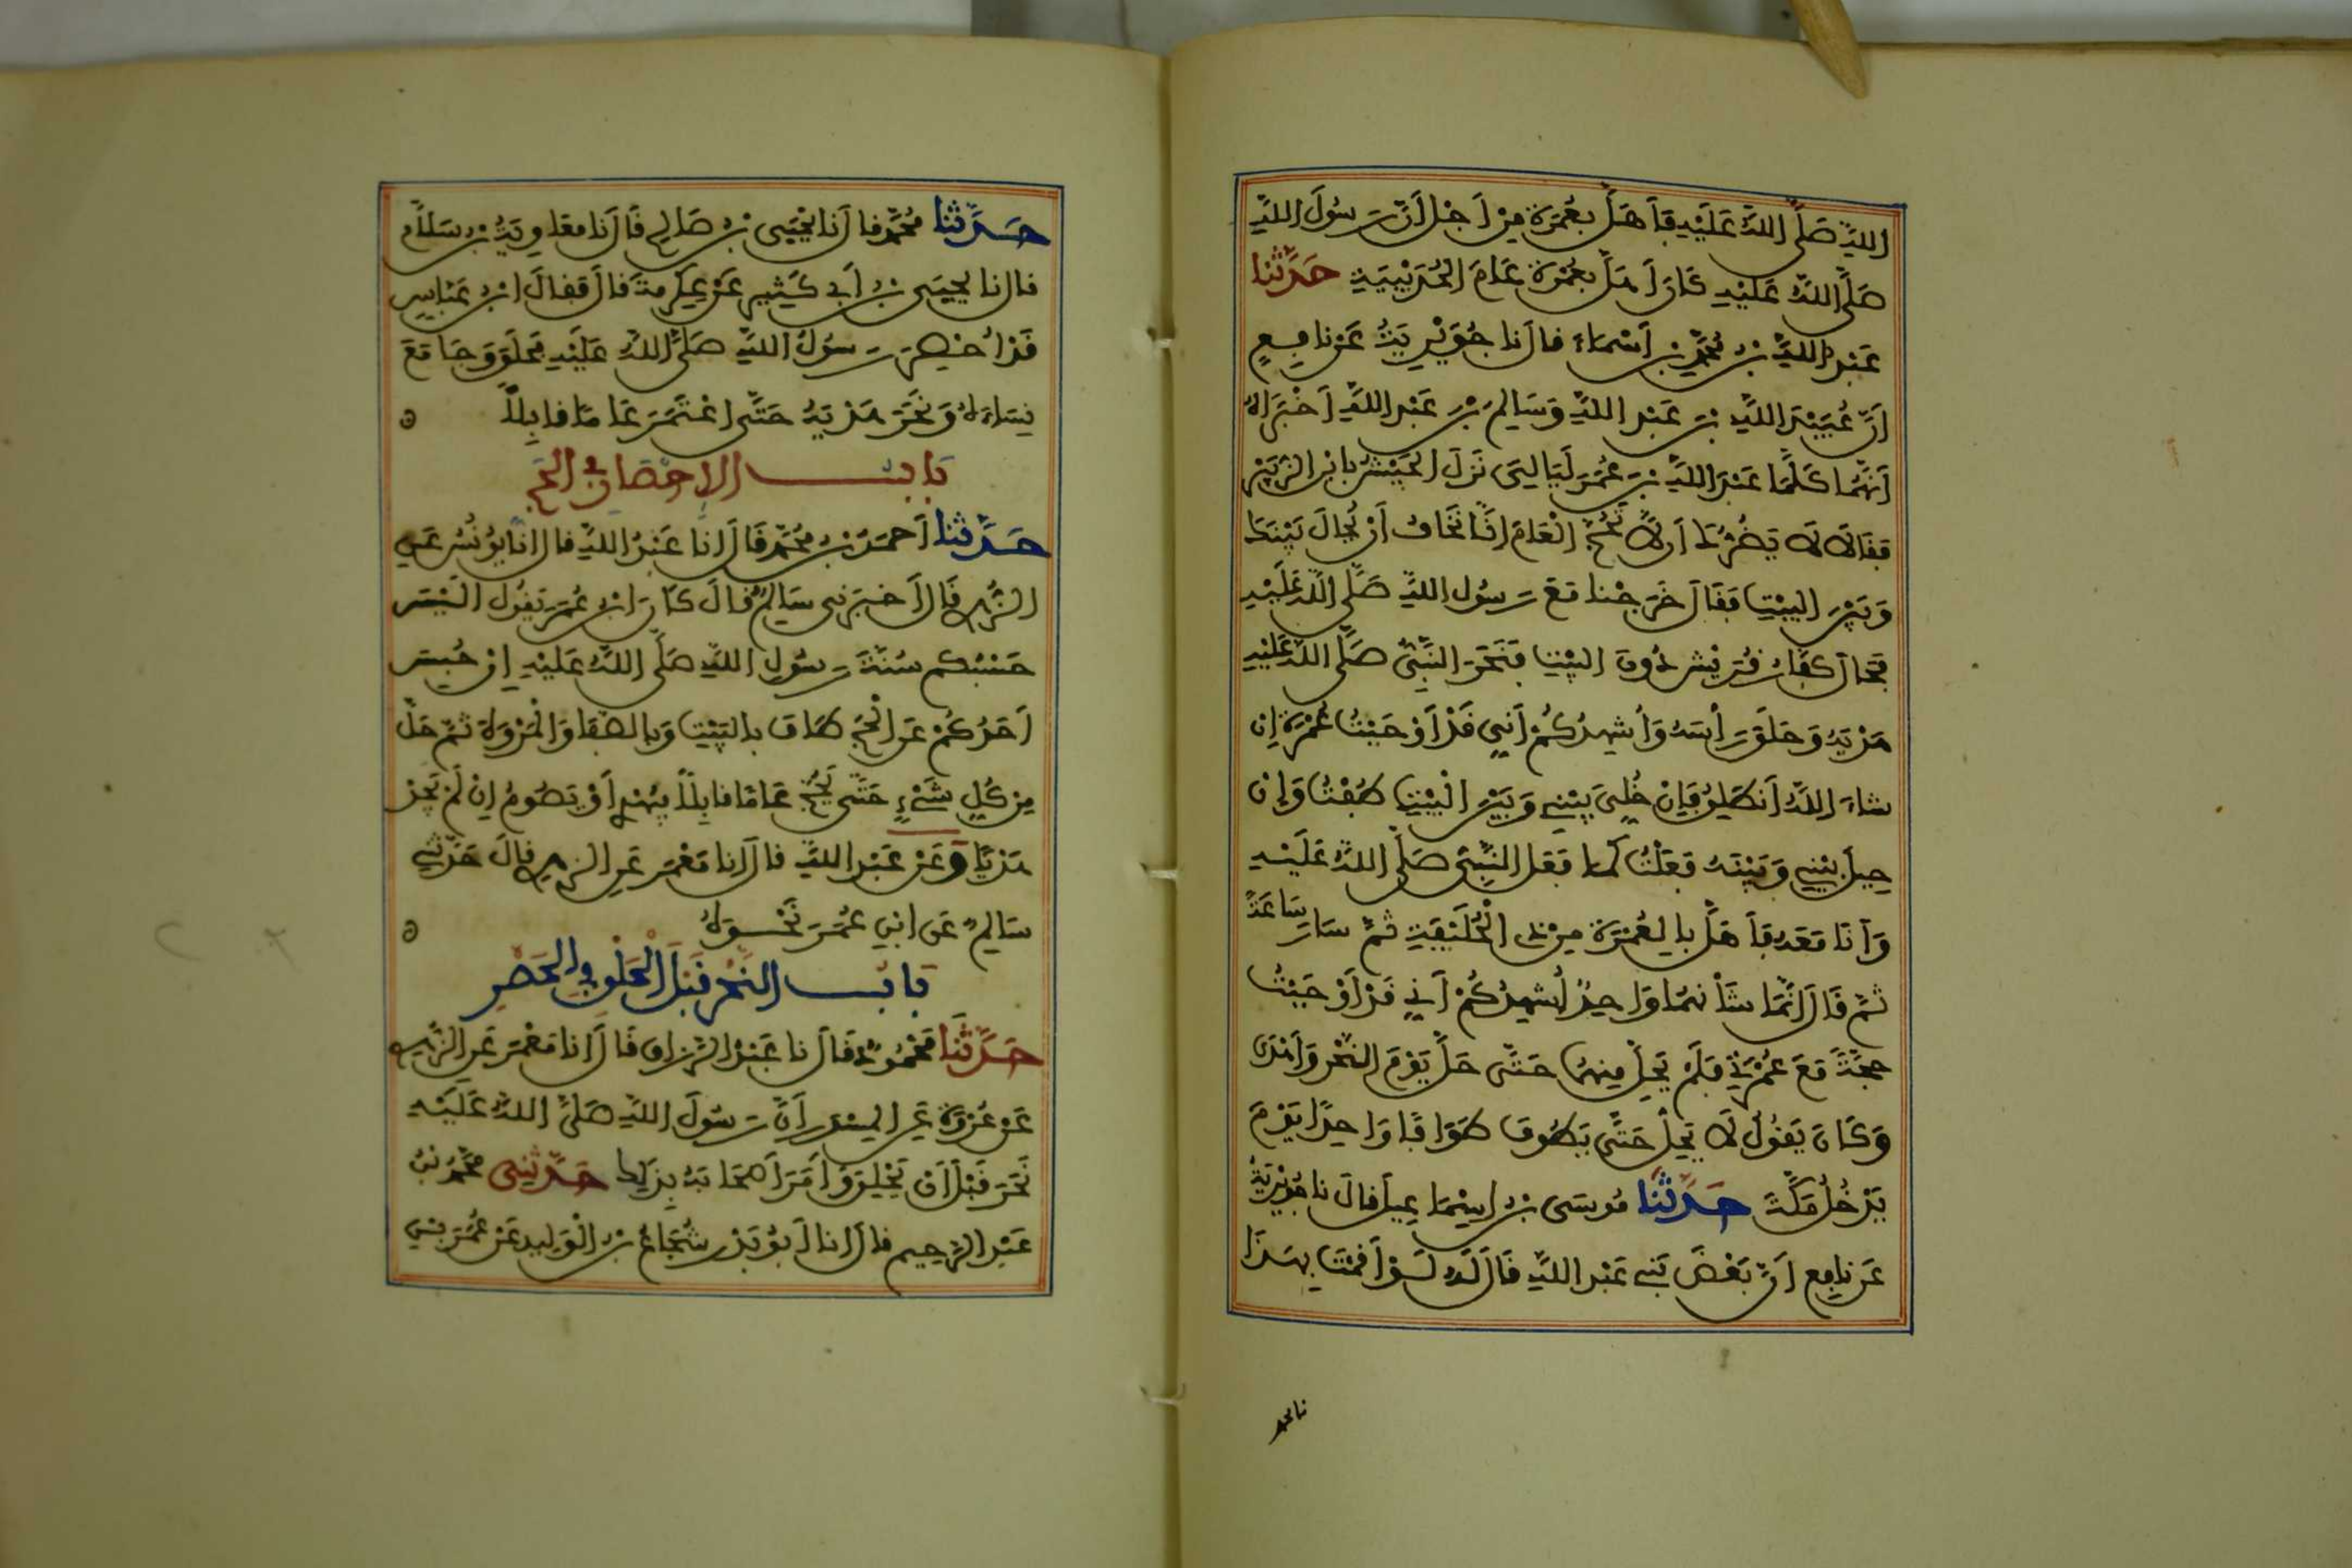 اللهِ صَلَّى اللهُ عَلَيْهِ فَأَهَلَّ بِعُمْرَةٍ مِنْ أَجْلِ أَنَّ رَسُولَ اللهِ
صَلَّى اللهُ عَلَيْهِ كَانَ أَهَلَّ بِعُمْرَةٍ عَامَ الْحُدَيْبِيَةِ حَدَّثَنَا
عَبْدُ اللهِ بْنُ مُحَمَّدِ بْنِ أَسْمَاءَ قال أَنا جُوَيْرِيَةُ عَنْ نافِعٍ
أَنَّ عُبَيْدَ اللهِ بْنَ عَبْدِ اللهِ وَسَالِمَ بْنَ عَبْدِ اللهِ أَخْبَرَاهُ
أَنَّهُمَا كَلَّمَا عَبْدَ اللهِ بْنَ عُمَرَ لَيَالِيَ نَزَلَ الْجَيْشُ بِابْنِ الزُّبَيْرِ
فَقَالَا لَا يَضُرُّكَ أَنْ لَا تَحُجَّ الْعَامَ إِنَّا نَخَافُ أَنْ يُحَالَ بَيْنَكَ
وَبَيْنَ الْبَيْتِ فَقَالَ خَرَجْنا مَعَ رَسُولِ اللهِ صَلَّى اللهُ عَلَيْهِ
فَحَالَ كُفَّارُ قُرَيْشٍ دُونَ الْبَيْتِ فَنَحَرَ النَّبِيُّ صَلَّى اللهُ عَلَيْهِ
هَدْيَهُ وَحَلَقَ رَأْسَهُ وَأُشْهِدُكُمْ أَنِّي قَدْ أَوْجَبْتُ عُمْرَةً إِنْ
شَاءَ اللهُ أَنْطَلِقُ فَإِنْ خُلِّيَ بَيْنِي وَبَيْنَ الْبَيْتِ طُفْتُ وَإِنْ
حِيلَ بَيْنِي وَبَيْنَهُ فَعَلْتُ كَمَا فَعَلَ النَّبِيُّ صَلَّى اللهُ عَلَيْهِ
وَأَنَا مَعَهُ فَأَهَلَّ بِالْعُمْرَةِ مِنْ ذِي الْحُلَيْفَةِ ثُمَّ سَارَ سَاعَةً
ثُمَّ قَالَ إِنَّمَا شَأْنُهُمَا وَاحِدٌ أُشْهِدُكُمْ أَنِّي قَدْ أَوْجَبْتُ
حَجَّةً مَعَ عُمْرَتِي فَلَمْ يَحِلَّ مِنْهُمَا حَتَّى حَلَّ يَوْمَ النَّحْرِ وَأَهْدَى
وَكَانَ يَقُولُ لَا يَحِلُّ حَتَّى يَطُوفَ طَوَافًا وَاحِدًا يَوْمَ
يَدْخُلُ مَكَّةَ حَدَّثَنَا مُوسَى بْنُ إِسْمَاعِيلَ قالَ نا جُوَيْرِيَةُ
عَنْ نافِعٍ أَنَّ بَعْضَ بَنِي عَبْدِ اللهِ قَالَ لَهُ لَوْ أَقَمْتَ بِهَذَا
نا محمد
حَدَّثَنَا مُحَمَّدٌ قال أَنا يَحْيَى بْنُ صَالِحٍ قَالَ أَنا مُعَاوِيَةُ بْنُ سَلَّامٍ
قال نا يَحْيَى بْنُ أَبِي كَثِيرٍ عَنْ عِكْرِمَةَ قَالَ فَقَالَ ابْنُ عَبَّاسٍ
قَدْ أُحْصِرَ رَسُولُ اللهِ صَلَّى اللهُ عَلَيْهِ فَحَلَقَ وَجَامَعَ
نِسَاءَهُ وَنَحَرَ هَدْيَهُ حَتَّى اعْتَمَرَ عَامًا قَابِلًا
بَابُ الإِحْصَارِ فِي الْحَجِّ
حَدَّثَنَا أَحْمَدُ بْنُ مُحَمَّدٍ قَالَ أَنا عَبْدُ اللهِ قال أَنا يُونُسُ عَنِ
الزُّهْرِيِّ قَالَ أَخْبَرَنِي سَالِمٌ قالَ كَانَ ابْنُ عُمَرَ يَقُولُ أَلَيْسَ
حَسْبُكُمْ سُنَّةَ رَسُولِ اللهِ صَلَّى اللهُ عَلَيْهِ إِنْ حُبِسَ
أَحَدُكُمْ عَنِ الْحَجِّ طَافَ بِالْبَيْتِ وَبِالصَّفَا وَالْمَرْوَةِ ثُمَّ حَلَّ
مِنْ كُلِّ شَيْءٍ حَتَّى يَحُجَّ عَامًا قَابِلًا فَيُهْدِي أَوْ يَصُومُ إِنْ لَمْ يَجِدْ
هَدْيًا وَعَنْ عَبْدِ اللهِ قالَ أَنا مَعْمَرٌ عَنِ الزُّهْرِيِّ قالَ حَدَّثَنِي
سَالِمٌ عَنِ ابْنِ عُمَرَ نَحْوَهُ
بَابُ النَّحْرِ قَبْلَ الْحَلْقِ فِي الْحَصْرِ
حَدَّثَنَا مَحْمُودٌ قَالَ نا عَبْدُ الرَّزَّاقِ قَالَ أَنا مَعْمَرٌ عَنِ الزُّهْرِيِّ
عَنْ عُرْوَةَ عَنِ الْمِسْوَرِ أَنَّ رَسُولَ اللهِ صَلَّى اللهُ عَلَيْهِ
نَحَرَ قَبْلَ أَنْ يَحْلِقَ وَأَمَرَ أَصْحَابَهُ بِذَلِكَ حَدَّثَنِي مُحَمَّدُ بْنُ
عَبْدِ الرَّحِيمِ قالَ أَنا أَبُو بَدْرٍ شُجَاعُ بْنُ الْوَلِيدِ عَنْ عُمَرَ بْنِ